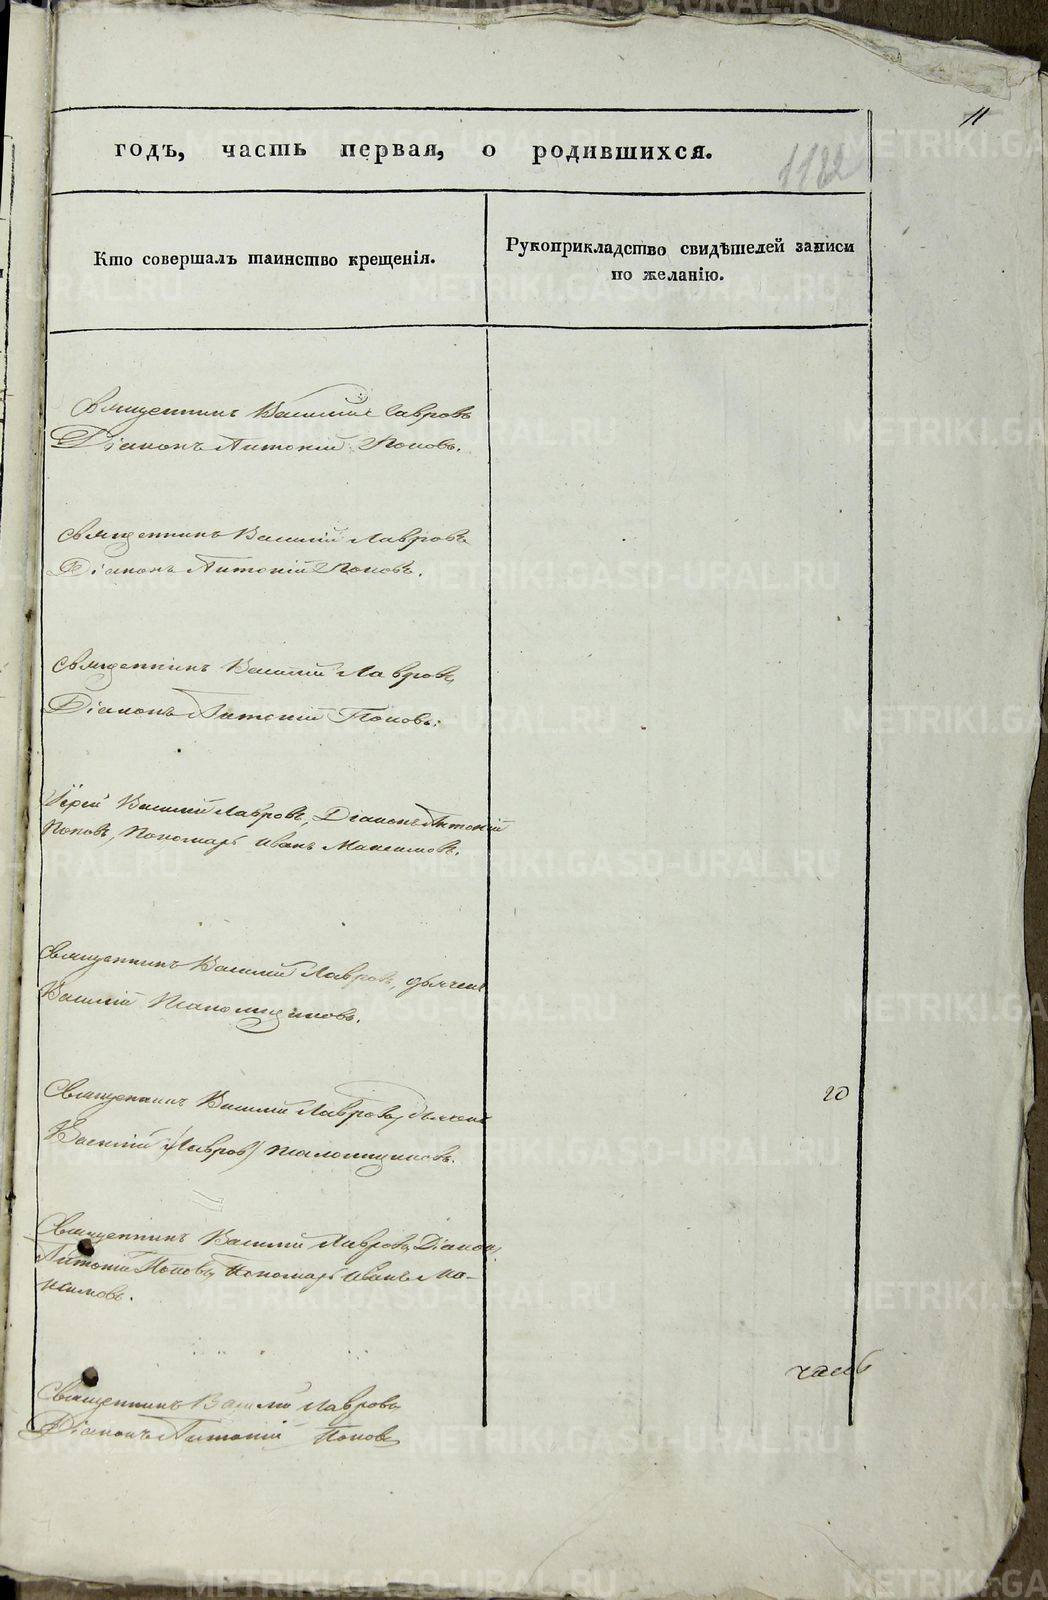 11
годъ, часть первая, о родившихся.
1122
Кто совершалъ таинство крещенія.
Рукоприкладство свидѣтелей записи
по желанію.
Священникъ Василій Лавровъ
Діаконъ Антоній Поповъ.
Священникъ Василій Лавровъ
Діаконъ Антоній Поповъ.
Священникъ Василій Лавровъ
Діаконъ Антоній Поповъ.
Іерей Василій Лавровъ, Діаконъ Антоній
Поповъ, Пономарь Иванъ Максимовъ.
Священникъ Василій Лавровъ, дьячекъ
Василій
Священникъ Василій Лавровъ, дьячекъ
Василій (Лавров)
20
Священникъ Василій Лавровъ, Діаконъ
Антоній Поповъ, Пономарь Иванъ Ма-
ксимовъ.
часть
Священникъ Василій Лавровъ
Діаконъ Антоній Поповъ
METRIKI.GASO-URAL.RU